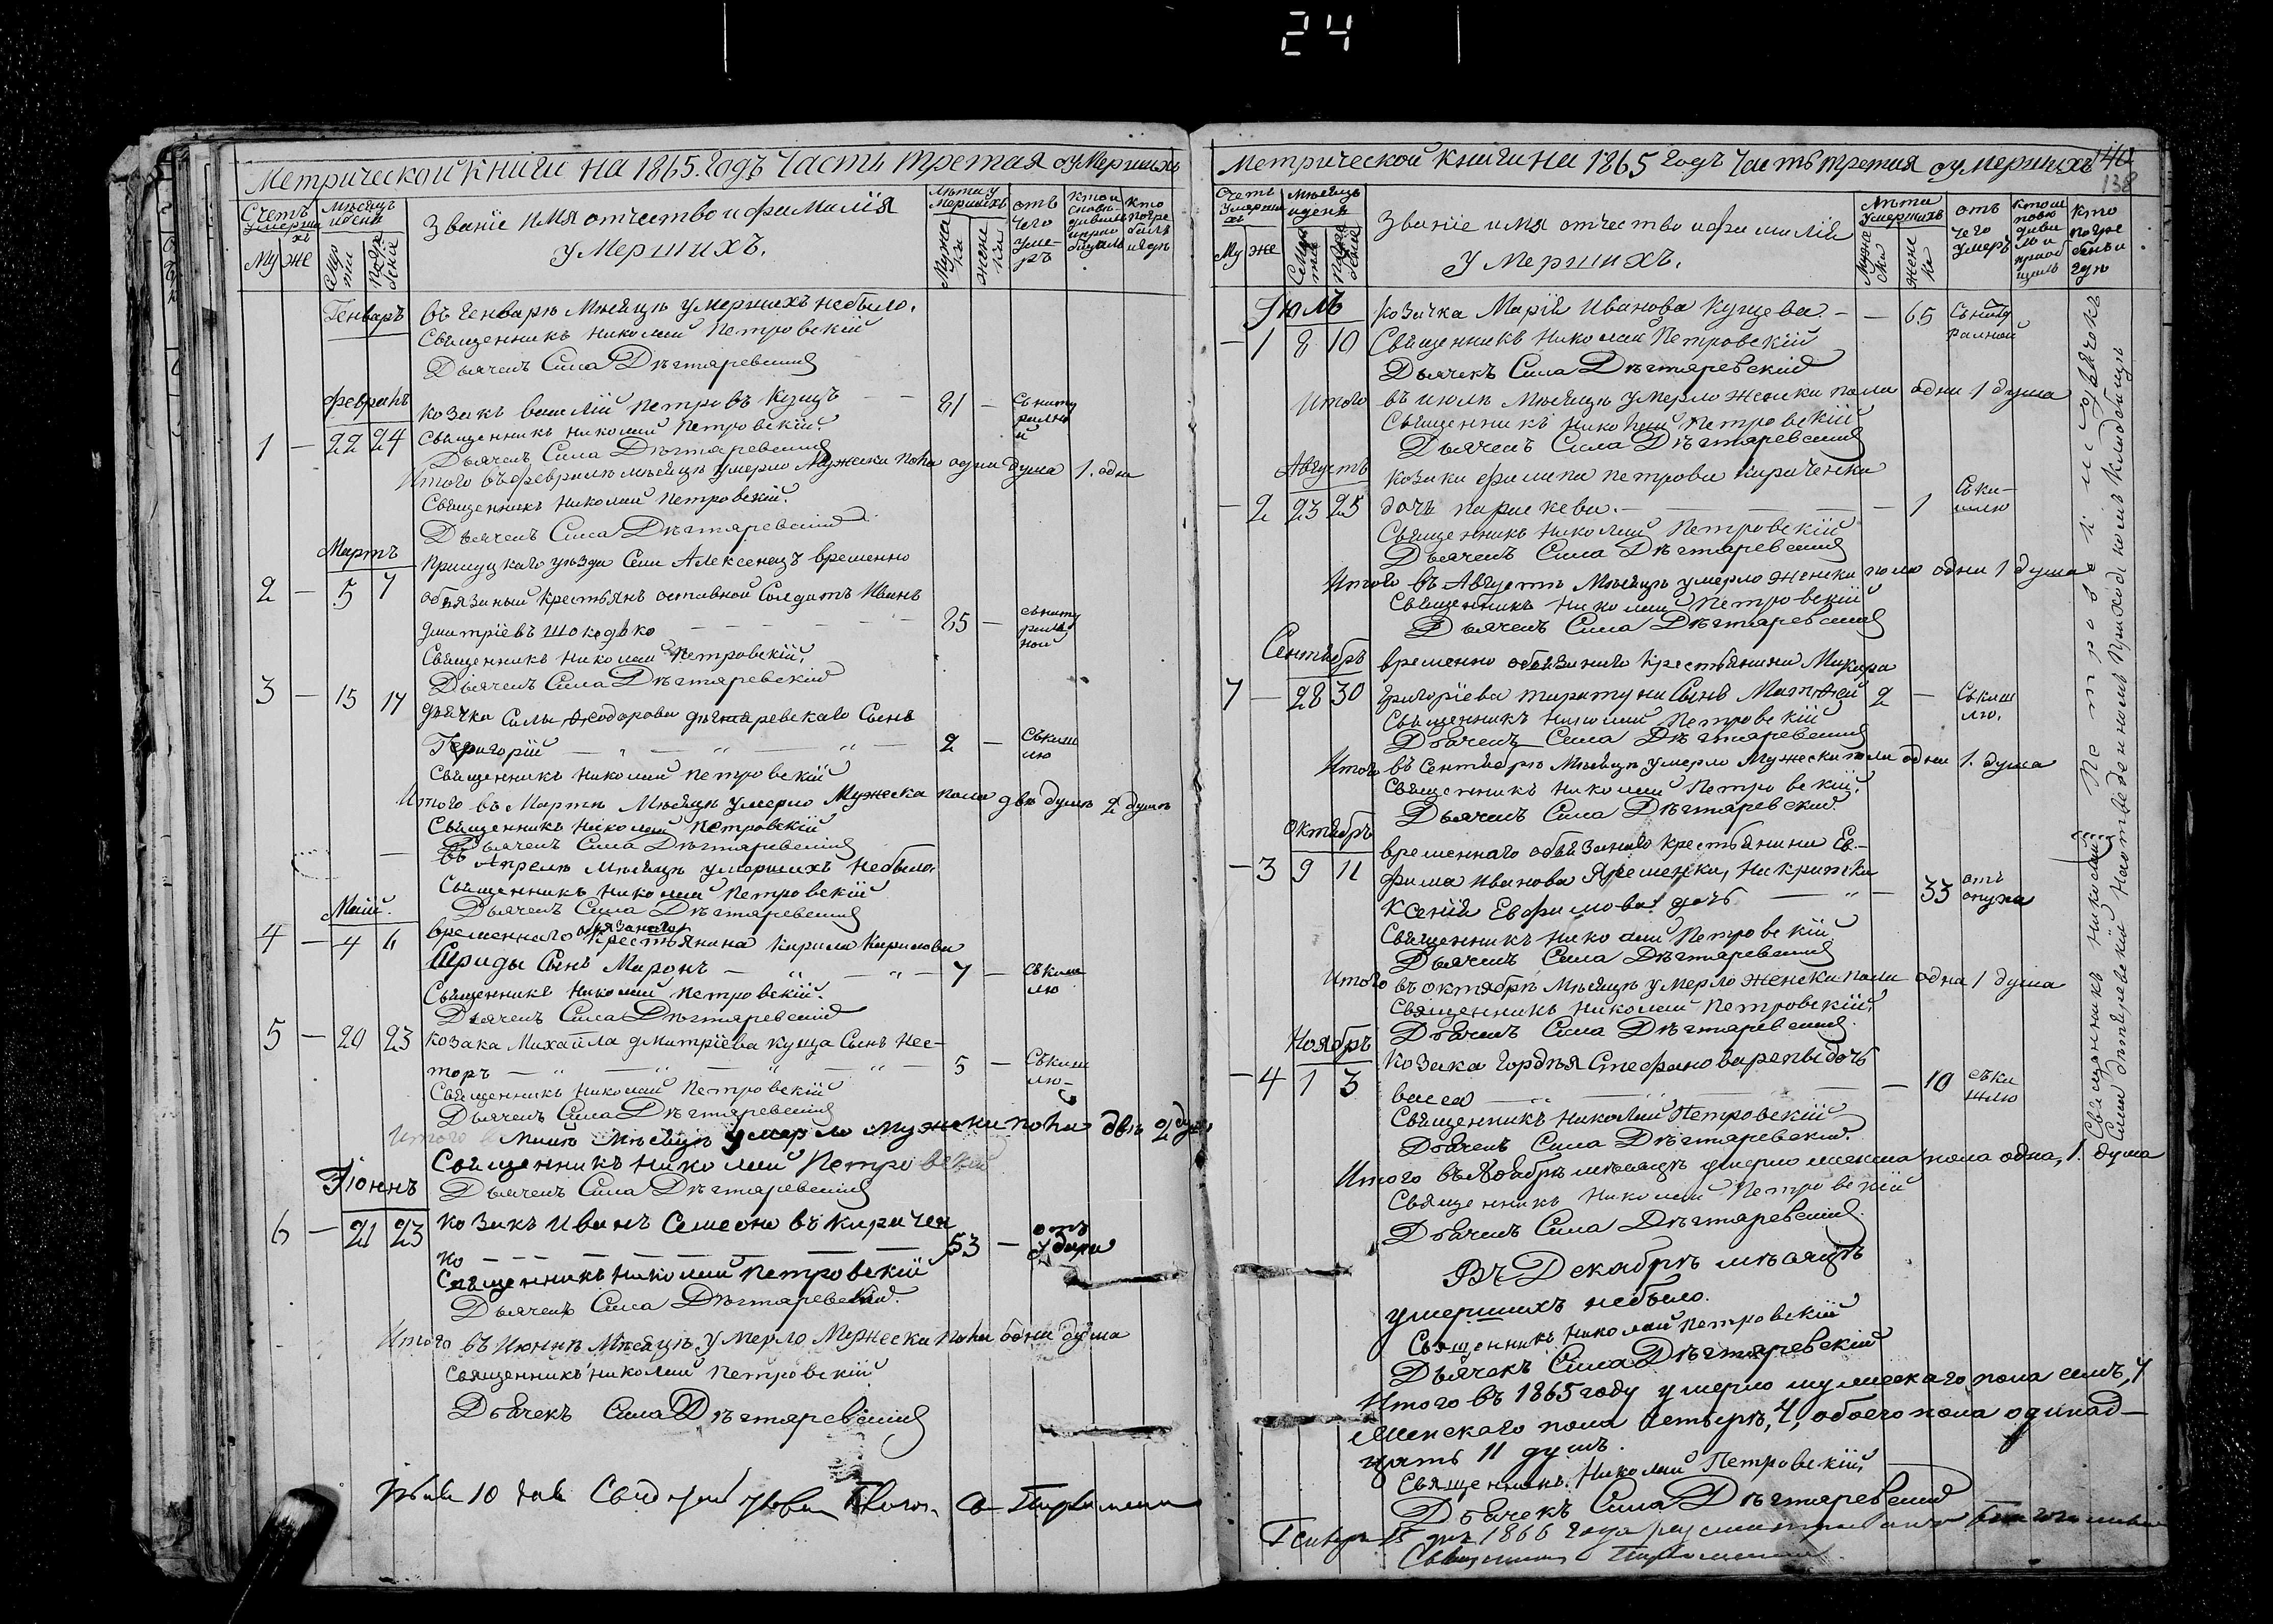 24
Метрической книги на 1865. годъ часть третая оумершихъ
Счетъ умершихъ
Мѣсяцъ и день
Званіе имя отчество и фамилія
умершихъ.
Лѣта умершихъ
отъ чего умеръ
кто
Му же
Муже ска
жене ка
Генваръ
въ Генварѣ Мѣсяцѣ умершихъ небыло.
Священникъ Николай Петровскій
Дьячекъ Сила Дѣгтяревскій
февраль
1 — 22 24 козакъ василій петровъ Куцъ — 81 —
Священникъ Николай Петровскій.
Дьячекъ Сила Дѣгтяревскій
Итого въ февралѣ мѣсяцѣ умерло Мужеска пола одна душа 1. одна
Священникъ Николай Петровскій.
Дьячекъ Сила Дѣгтяревскій
Мартъ
Прилуцкаго уѣзда Села Алексенецъ временно
2 — 5 7 обязаный крестьянъ Солдатъ Иванъ
дмитріевъ 85 —
Священникъ Николай Петровскій.
Дьячекъ Сила Дѣгтяревскій
3 — 15 17 дьячка Силы Ѳеодорова дѣгтяревскаго Сынъ
Григорій — 2 — Съкашлю
Священникъ Николай Петровскій
Итого въ Мартѣ Мѣсяцѣ умерло Мужеска пола двѣ душѣ 2 душѣ
Священникъ Николай Петровскій
Дьячекъ Сила Дѣгтяревскій
въ Апрелѣ Мѣсяцѣ умершихъ небыло.
Священникъ Николай Петровскій
Дьячекъ Сила Дѣгтяревскій
Маій.
4 — 4 6 временнаго обязанаго крестьянина Кирила Кирилова
Шриды Сынъ Миронъ — 7 — Съкашлю
Священникъ Николай Петровскій.
Дьячекъ Сила Дѣгтяревскій
5 — 20 23 козака Михаила дмитріева куца Сынъ Нес-
торъ — 5 — Съкашлю
Священникъ Николай Петровскій
Дьячекъ Сила Дѣгтяревскій
Итого в Маіѣ Мѣсяцѣ умерло мужеска пола двѣ 2
Священникъ Николай Петровскій
Дьячекъ Сила Дѣгтяревскій
Іюннъ
6 — 21 23 козакъ Иванъ Семеоновъ киричен
ко — 53 — отъ
Священникъ Николай Петровскій
Дьячекъ Сила Дѣгтяревскій.
Итого въ Июннѣ Мѣсяцѣ умерло Мужеска пола одна душа
Священникъ Николай Петровскій
Дьячекъ Сила Дѣгтяревскій
Метрической книги на 1865 годъ часть третия оумершихъ
140
138
Счетъ умершихъ
Мѣсяцъ и день
Званіе имя отчество и фамилія
умершихъ.
Лѣта умершихъ
отъ чего умеръ
кто
Му же
Муже ска
жене ка
Июлъ
козачка Марія Иванова Куцева — — 65
— 1 8 10 Священникъ Николай Петровскій
Дьячекъ Сила Дѣгтяревскій
Итого въ июлѣ Мѣсяцѣ умерло женска пола одна 1 душа
Священникъ Николай Петровскій
Дьячекъ Сила Дѣгтяревскій
Августъ
козака филипа петрова Кириченка
— 2 23 25 дочъ параскева. — 1 Съкашлю
Священникъ Николай Петровскій
Дьячекъ Сила Дѣгтяревскій
Итого въ Августѣ Мѣсяцѣ умерло женска пола одна 1 душа
Священникъ Николай Петровскій
Дьячекъ Сила Дѣгтяревскій
Сентябръ
временно обязанаго крестьянина Макара
7 — 28 30 Григоріева таратуна Сынъ Матѳей 2 — Съкашлю.
Священникъ Николай Петровскій
Дьячекъ Сила Дѣгтяревскій
Итого въ Сентябрѣ Мѣсяцѣ умерло Мужеска пола одна 1. душа
Священникъ Николай Петровскій.
Дьячекъ Сила Дѣгтяревский.
Октябръ
временнаго обязанаго крестьянина Ев-
— 3 9 11 фима Иванова Яременки,
Ксенія Евфимова дочъ — 33 отъ опуха
Священникъ Николай Петровскій
Дьячекъ Сила Дѣгтяревскій
Итого въ октябрѣ Мѣсяцѣ умерло женска пола одна 1 душа
Священникъ Николай Петровскій.
Дьячекъ Сила Дѣгтяревскій.
Ноябръ
козака гордѣя Стефанова репы дочъ
— 4 1 3 васса — — 10 съкашлю
Священникъ Николай Петровскій
Дьячекъ Сила Дѣгтяревский.
Итого въ Ноябрѣ мѣсяцѣ умерло женска пола одна, 1. душа
Священникъ Николай Петровскій
Дьячекъ Сила Дѣгтяревскій.
Въ Декабрѣ мѣсяцѣ
умершихъ небыло.
Священникъ Николай Петровскій
Дьячекъ Сила Дѣгтяревскій
Итого въ 1865 году умерло мужескаго пола семъ, 7
женскаго пола четырѣ, 4, обоего пола одинад-
цять 11 душъ.
Священникъ Николай Петровскій,
Дьячекъ Сила Дѣгтяревскій
Генваря 1866 года
Священникъ Николай Петровскій съ дьячкомъ
на отведенномъ приходскомъ кладбищѣ